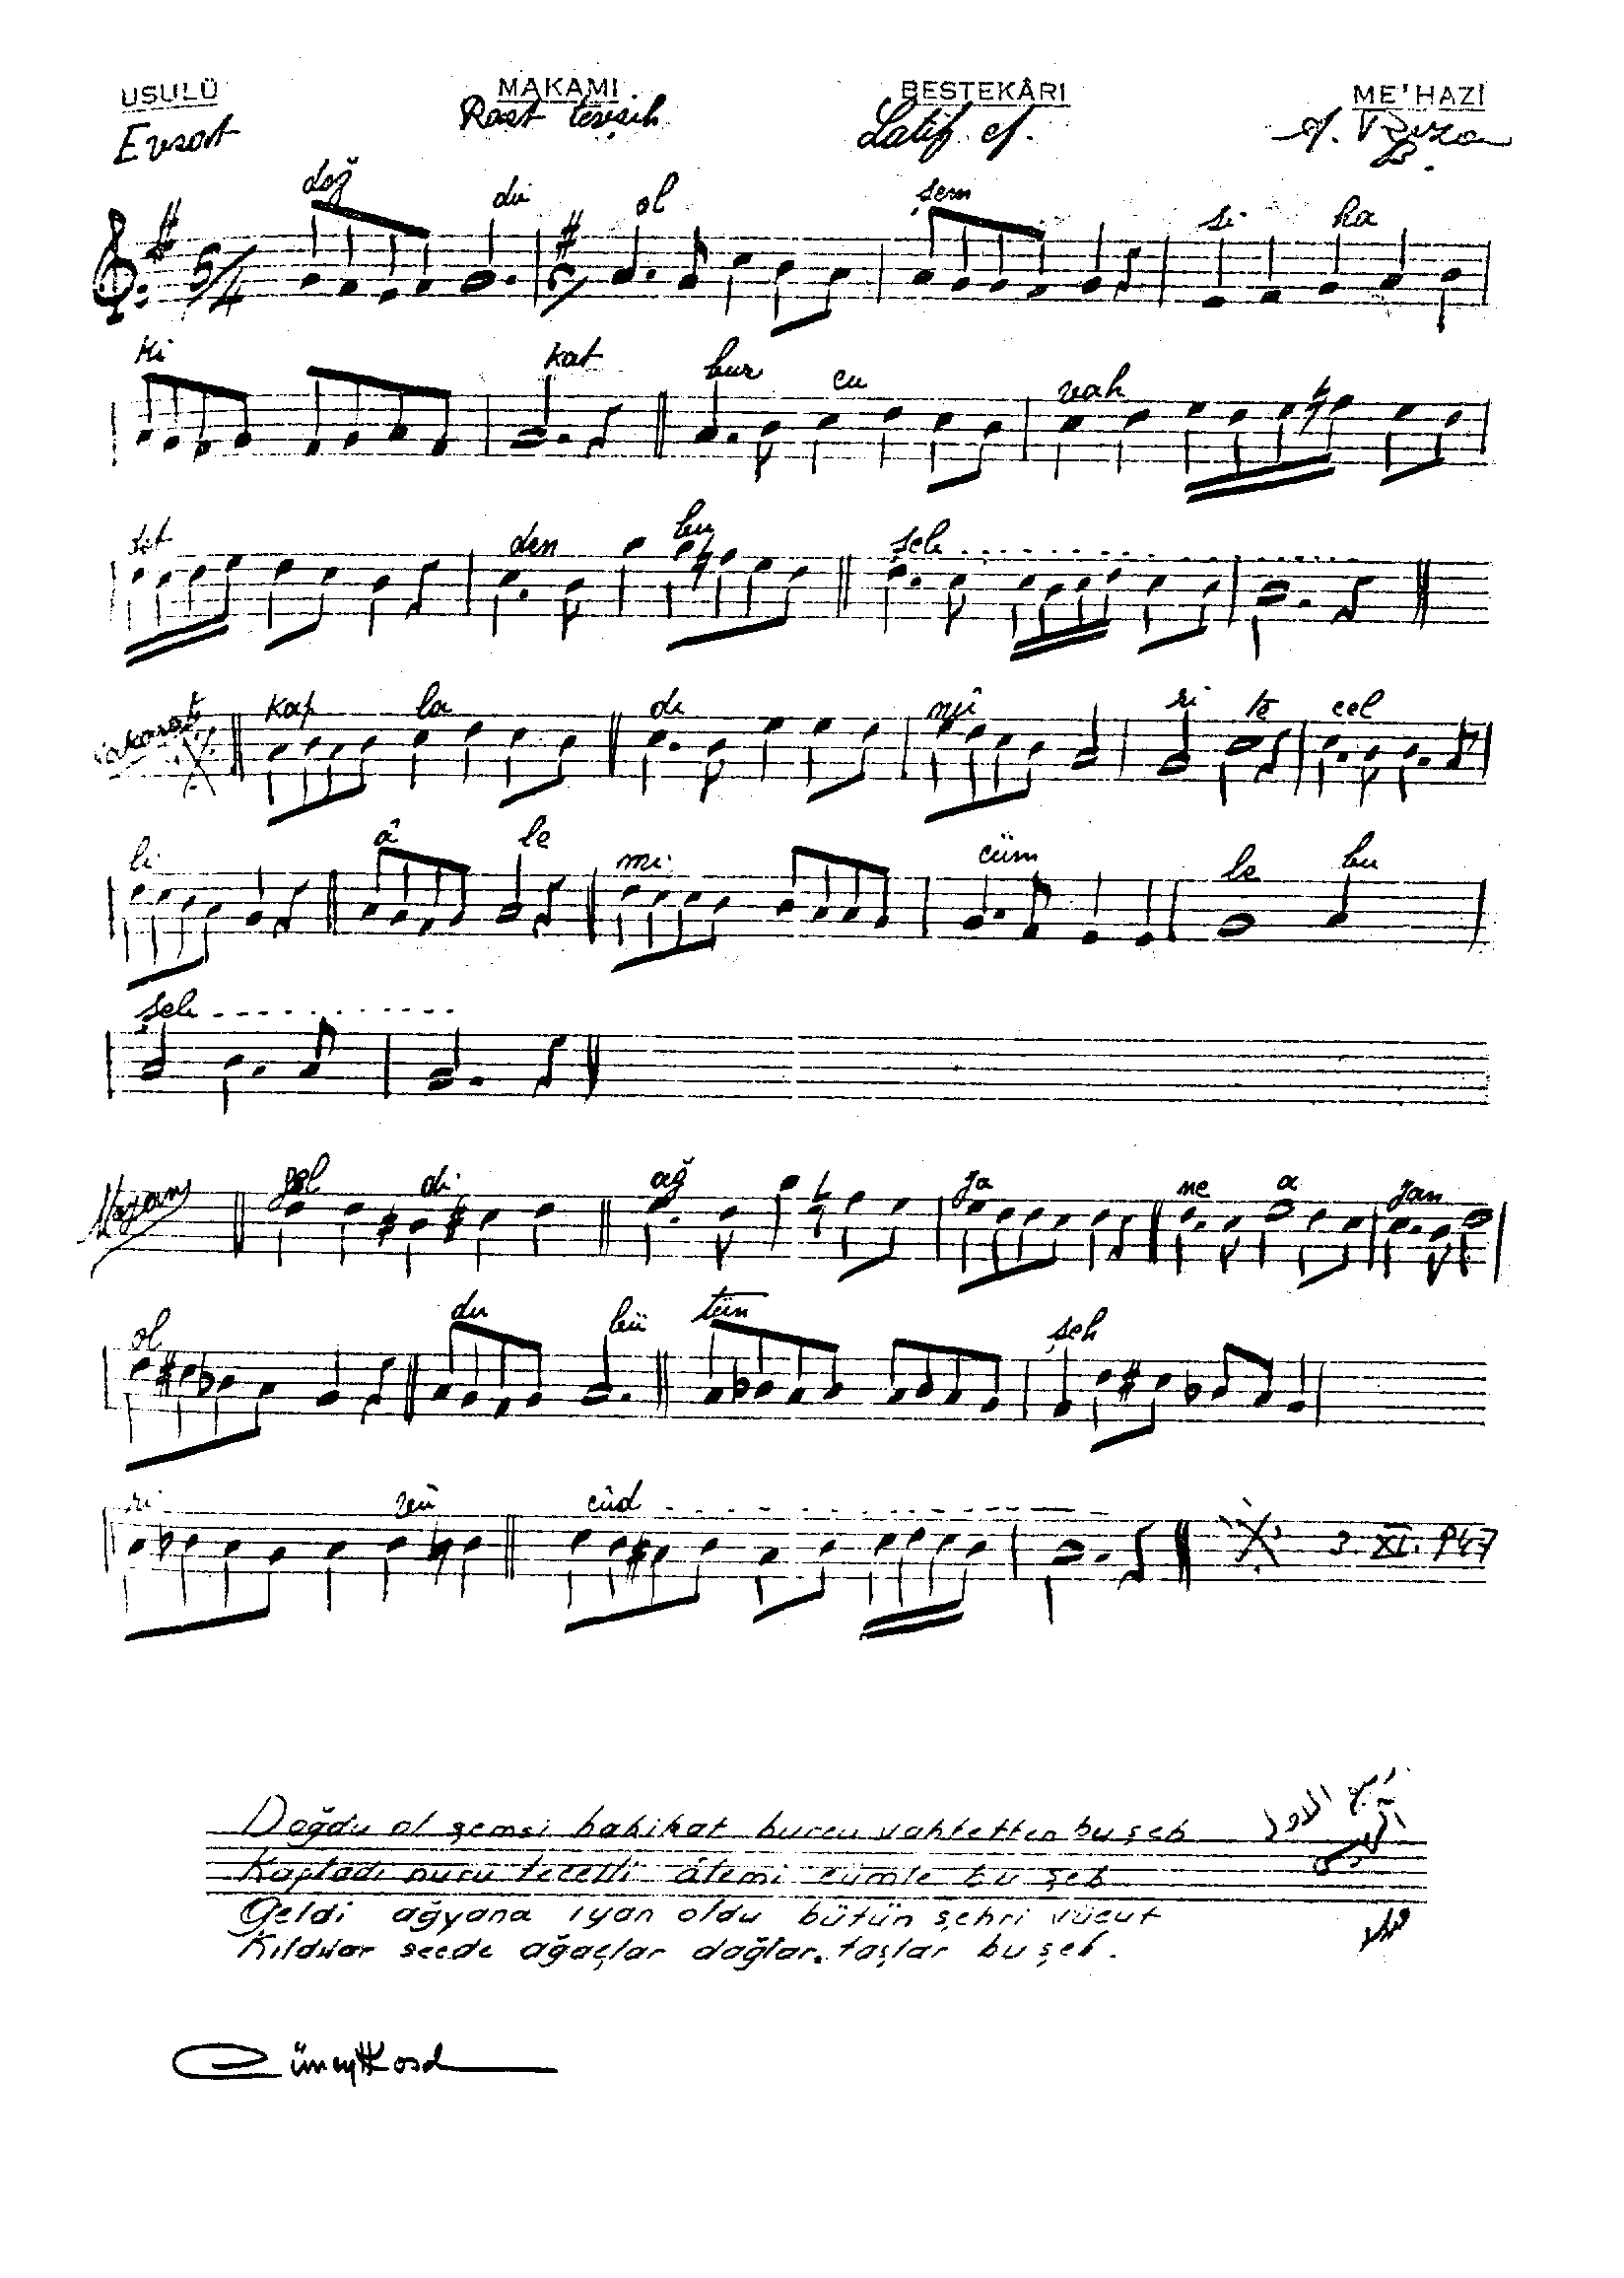 USULÜ MAKAMI BESTEKÂRI ME'HAZİ
Evsat Rast tevşih Latif ef. A. Rıza B.
doğ du ol şem si ha
5/4
ki kat bur cu vah
tet den bu
şeb
kap la dı nû ri te cel
li â le mi cüm le bu
şeb
Meyan gel di ağ ya ne a yan
ol du bü tün şeh
ri vü cûd 3 XI. 947
Doğdu ol şemsi hakikat burcu vahtetten bu şeb
Kapladı nuru tecelli âlemi cümle bu şeb
Geldi ağyana ıyan oldu bütün şehri vücut
Kıldılar secde ağaçlar dağlar, taşlar bu şeb.
Cüneyt Kosal